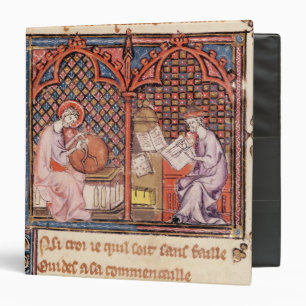 Nsi croi ie quil soit sans faille
Qui des a sa commencaille